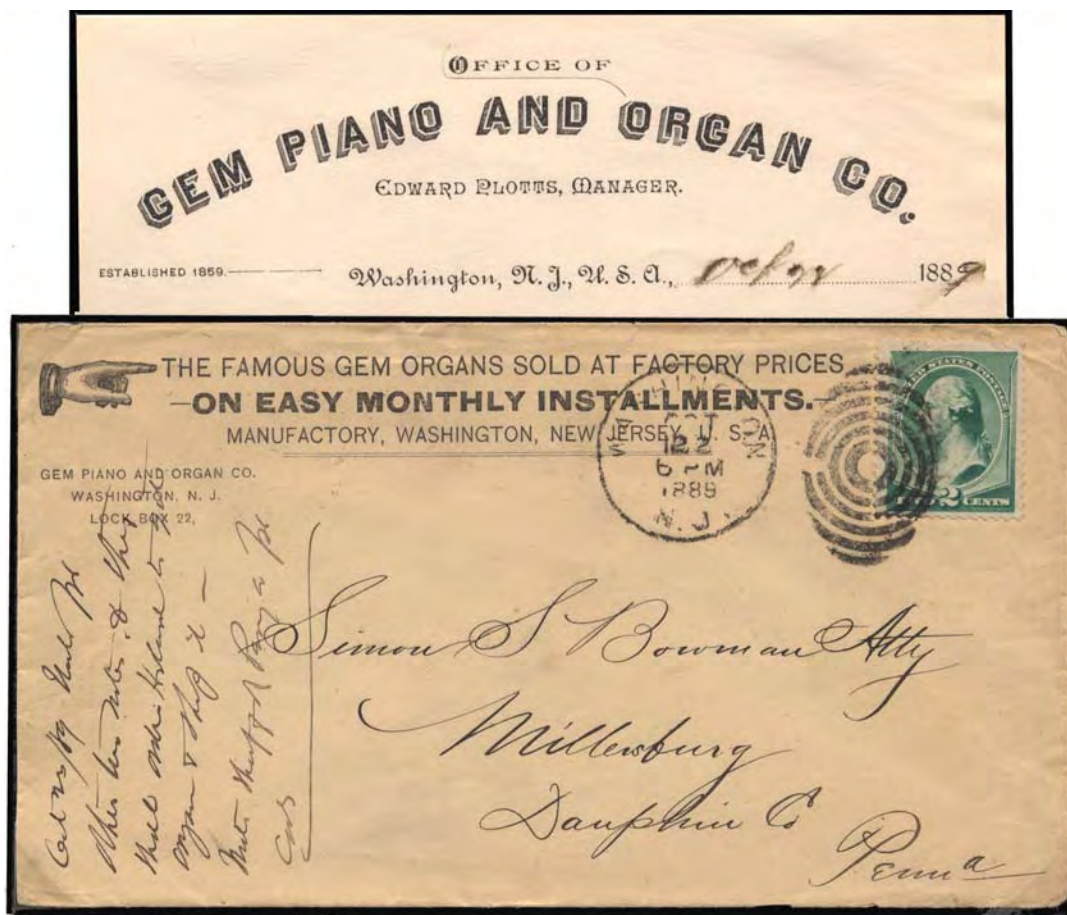 OFFICE OF
GEM PIANO AND ORGAN CO.
EDWARD PLOTTS, MANAGER.
ESTABLISHED 1859.
Washington, N. J., U. S. A., Oct 22 1889
THE FAMOUS GEM ORGANS SOLD AT FACTORY PRICES
—ON EASY MONTHLY INSTALLMENTS.—
MANUFACTORY, WASHINGTON, NEW JERSEY, U. S. A.
GEM PIANO AND ORGAN CO.
WASHINGTON, N. J.
LOCK BOX 22,
WASHINGTON
OCT
22
6 PM
1889
N. J.
UNITED STATES POSTAGE
2 CENTS
Simon S Bowman Atty
Millersburg
Dauphin Co
Penna
other two notes & ship
organ & ship it —